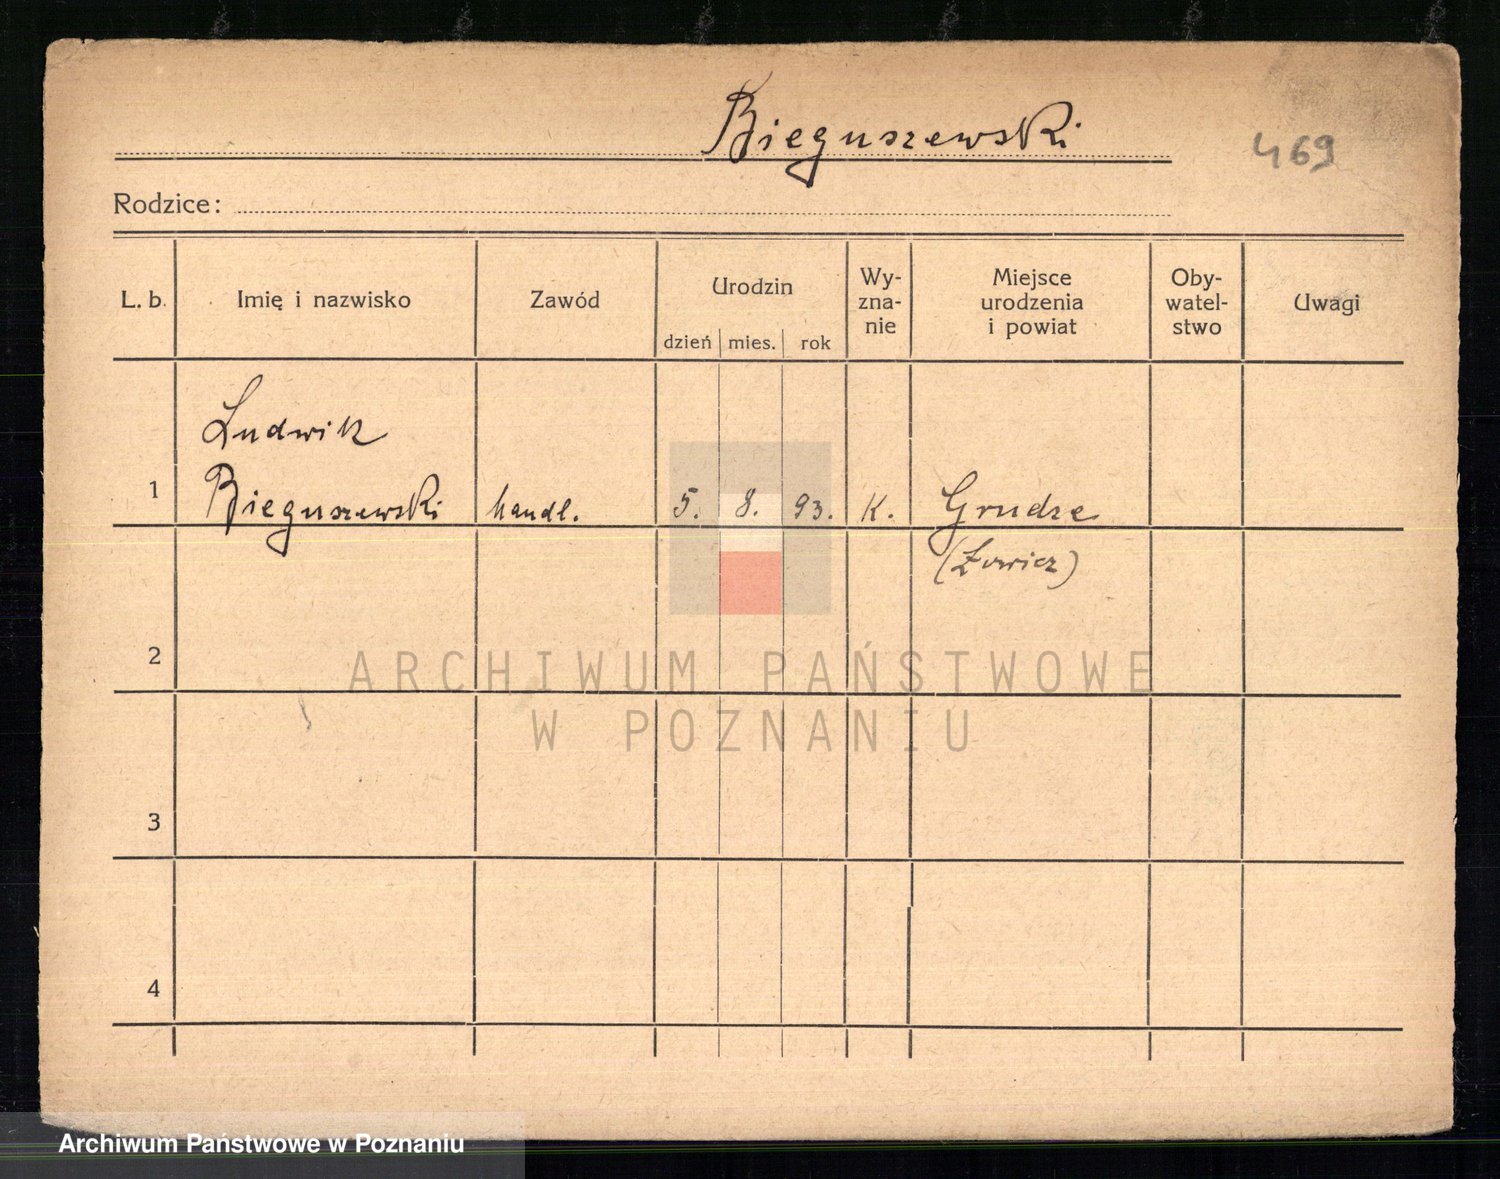 Bieguszewski
469
Rodzice:
L. b. Imię i nazwisko Zawód Urodzin dzień mies. rok Wy-zna-nie Miejsce urodzenia i powiat Oby-watel-stwo Uwagi
Ludwik
1 Bieguszewski handl. 5. 8. 93. K. Grudze
(Łowicz)
2
ARCHIWUM PAŃSTWOWE
W POZNANIU
3
4
Archiwum Państwowe w Poznaniu